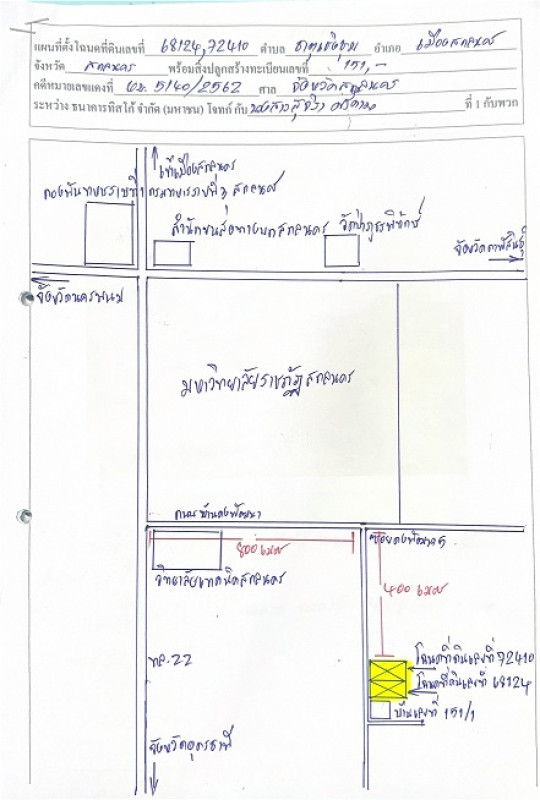 แผนที่ตั้งโฉนดที่ดินเลขที่ 68124,72410 ตำบล ธาตุเชิงชุม อำเภอ เมืองสกลนคร
จังหวัด สกลนคร พร้อมสิ่งปลูกสร้างทะเบียนเลขที่ 151,-
คดีหมายเลขแดงที่ ผบ. 5140/2562 ศาล จังหวัดสกลนคร
ระหว่าง ธนาคารทิสโก้ จำกัด (มหาชน) โจทก์ กับ นางสาวสุจิรา ที่ 1 กับพวก
เข้าเมืองสกลนคร
กรมทหารราบที่ 3 สกลนคร
สำนักขนส่งทางบกสกลนคร วัดป่าภูธรพิทักษ์
จังหวัดกาฬสินธุ์
จังหวัดนครพนม
มหาวิทยาลัยราชภัฏสกลนคร
ถนนบ้านดงพัฒนา
800 เมตร
ซอยดงพัฒนา 5
วิทยาลัยเทคนิคสกลนคร
400 เมตร
ทล.22
โฉนดที่ดินเลขที่ 72410
โฉนดที่ดินเลขที่ 68124
บ้านเลขที่ 151/1
จังหวัดอุดรธานี